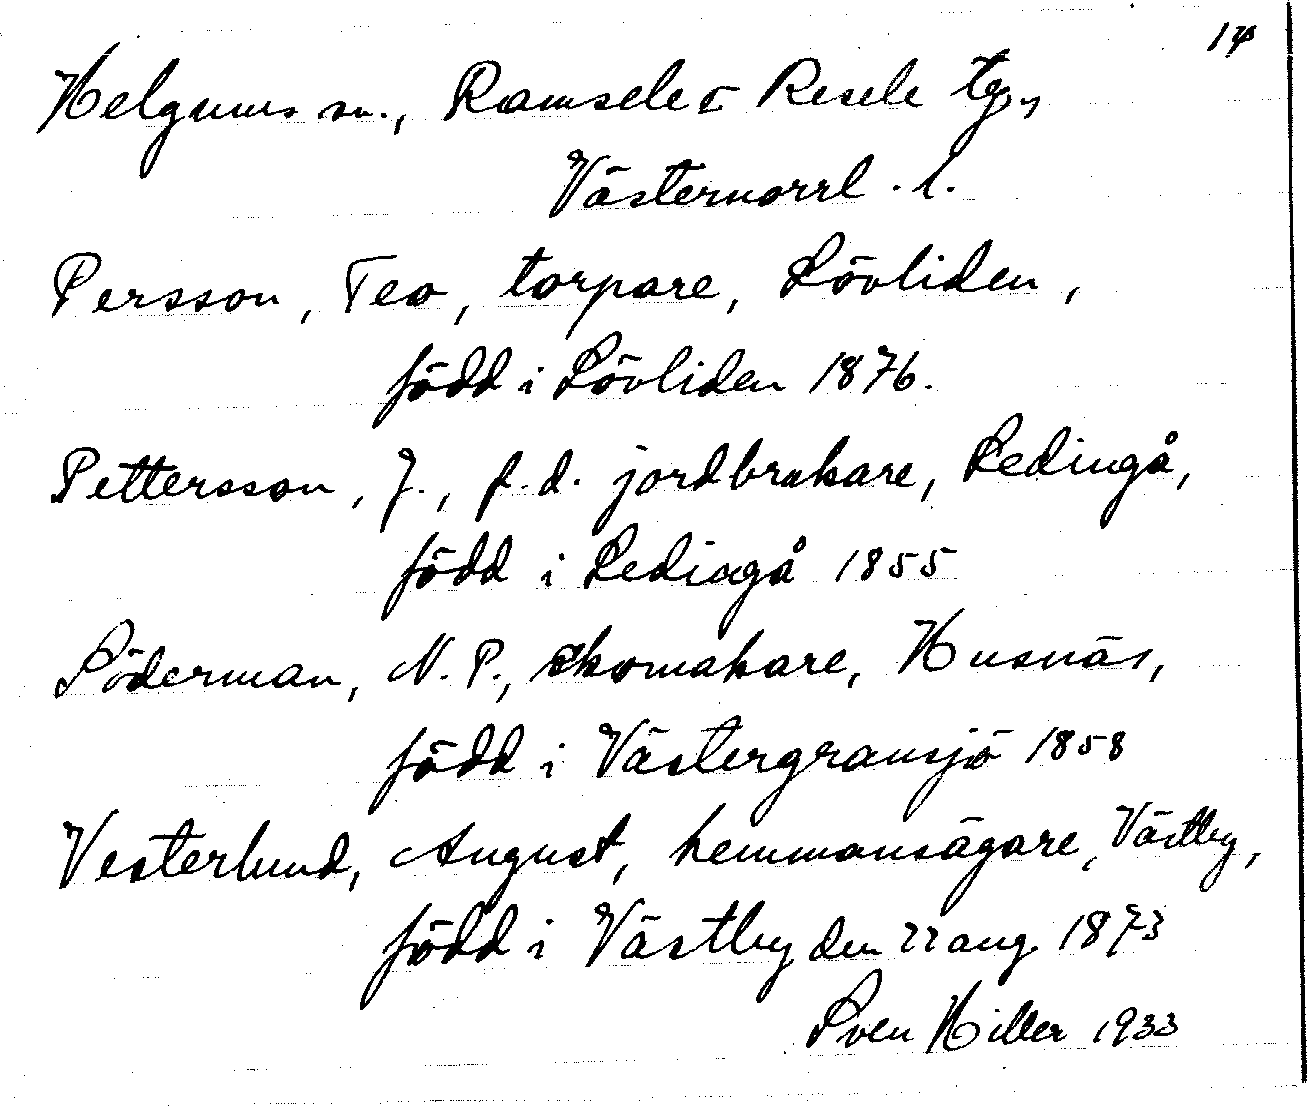 14
Helgums sn., Ramsele o Resele tg.,
Västernorrl. l.
Persson, Teo, torpare, Lövliden,
född i Lövliden 1876.
Pettersson, J., f.d. jordbrukare, Ledingå,
född i Ledingå 1855
Söderman, N. P., skomakare, Husnäs,
född i Västergransjö 1858
Vesterlund, August, hemmansägare, Västby,
född i Västby den 22 aug. 1873
Sven Hiller 1933